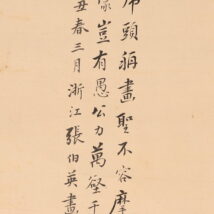 帋頭稱畫聖不容摩
豈有愚公力萬壑千
丑春三月浙江張伯英畫